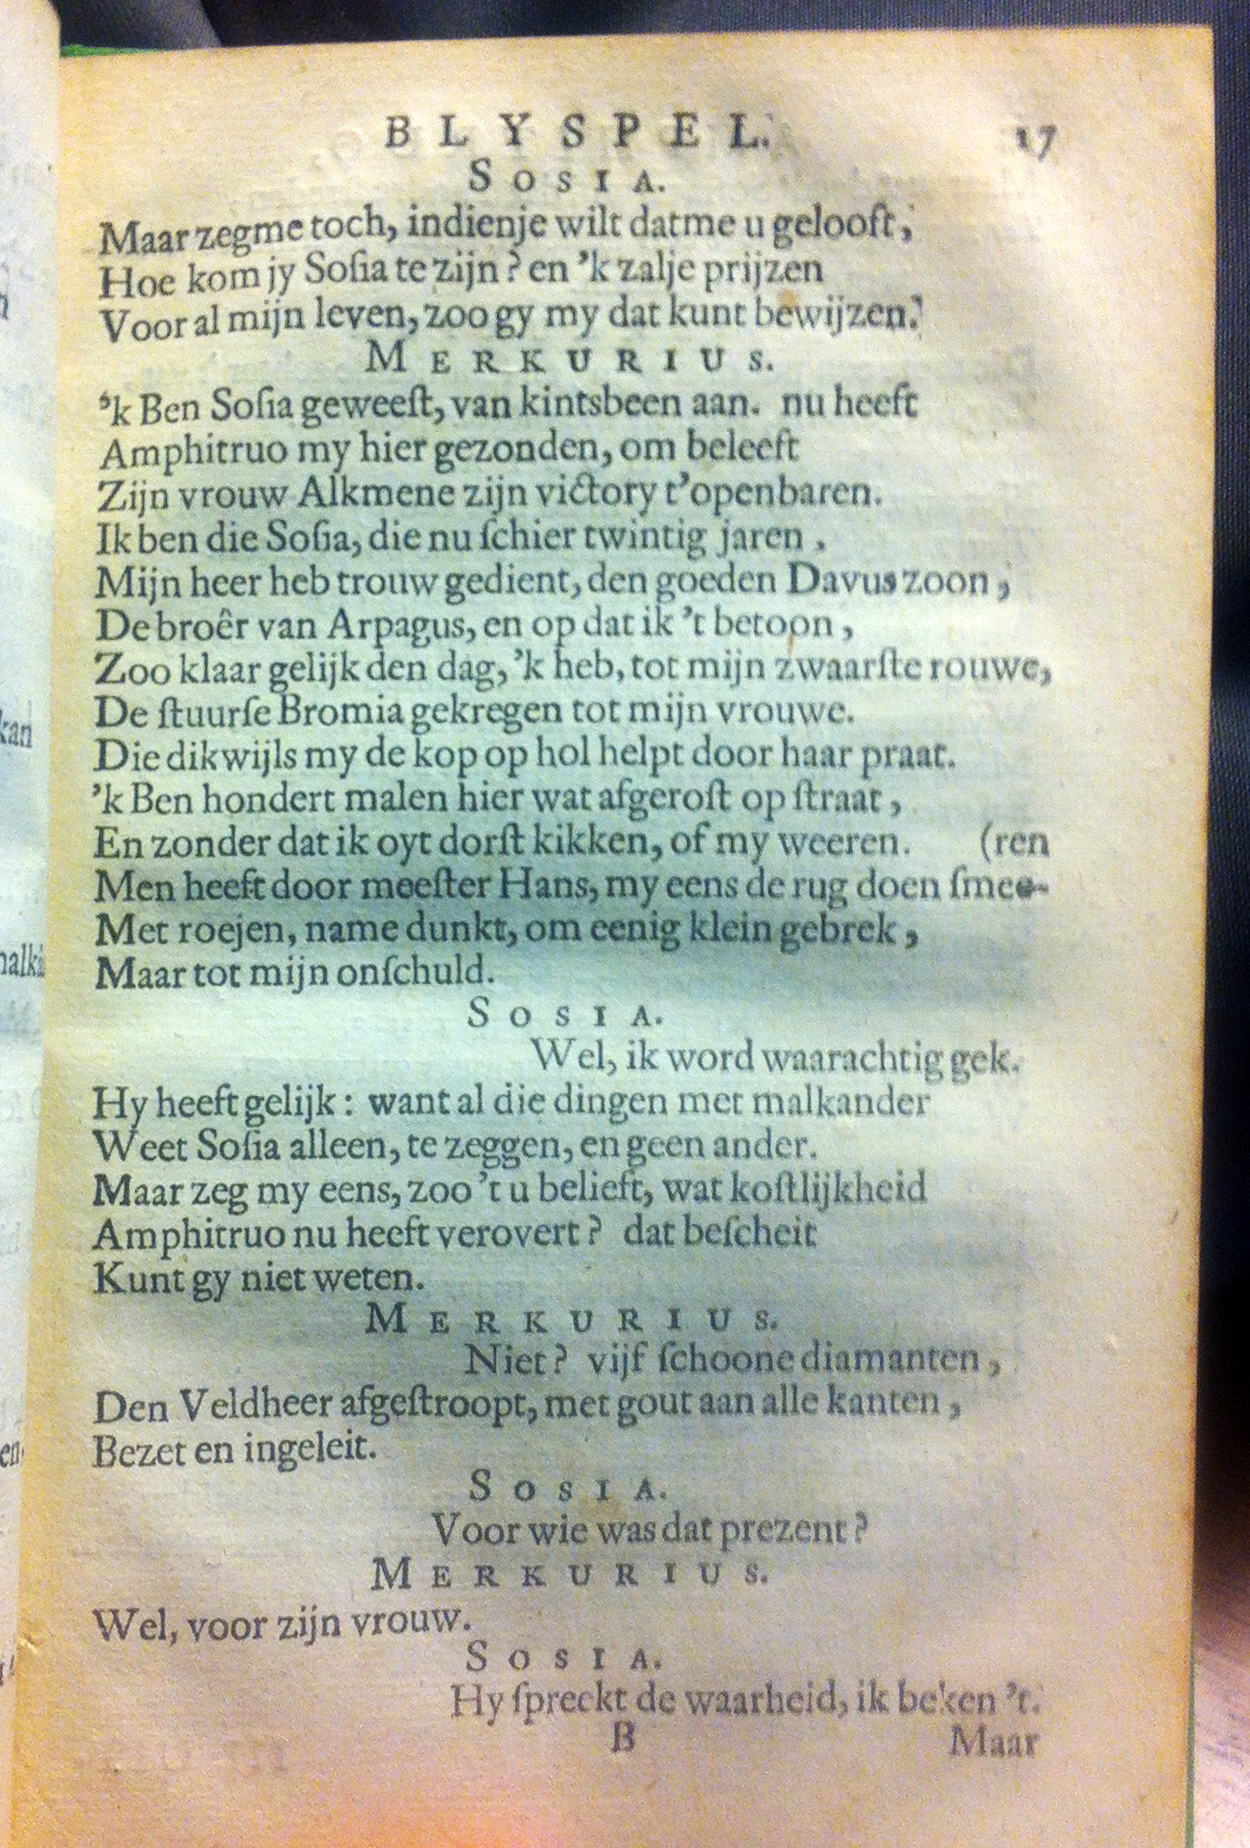 BLYSPEL. 17
SOSIA.
Maar zegme toch, indienje wilt datme u gelooft,
Hoe kom jy Soſia te zijn? en 'k zalje prijzen
Voor al mijn leven, zoo gy my dat kunt bewijzen.
MERKURIUS.
'k Ben Soſia geweeſt, van kintsbeen aan. nu heeft
Amphitruo my hier gezonden, om beleeft
Zijn vrouw Alkmene zijn victory t'openbaren.
Ik ben die Soſia, die nu ſchier twintig jaren.
Mijn heer heb trouw gedient, den goeden Davus zoon,
De broêr van Arpagus, en op dat ik 't betoon,
Zoo klaar gelijk den dag, 'k heb, tot mijn zwaarſte rouwe,
De ſtuurſe Bromia gekregen tot mijn vrouwe.
Die dikwijls my de kop op hol helpt door haar praat.
'k Ben hondert malen hier wat afgeroſt op ſtraat,
En zonder dat ik oyt dorſt kikken, of my weeren. (ren
Men heeft door meeſter Hans, my eens de rug doen ſmee-
Met roejen, name dunkt, om eenig klein gebrek,
Maar tot mijn onſchuld.
SOSIA.
Wel, ik word waarachtig gek.
Hy heeft gelijk: want al die dingen met malkander
Weet Soſia alleen, te zeggen, en geen ander.
Maar zeg my eens, zoo 't u belieft, wat koſtlijkheid
Amphitruo nu heeft verovert? dat beſcheit
Kunt gy niet weten.
MERKURIUS.
Niet? vijf ſchoone diamanten,
Den Veldheer afgeſtroopt, met gout aan alle kanten,
Bezet en ingeleit.
SOSIA.
Voor wie was dat prezent?
MERKURIUS.
Wel, voor zijn vrouw.
SOSIA.
Hy ſpreekt de waarheid, ik beken 't.
B Maar